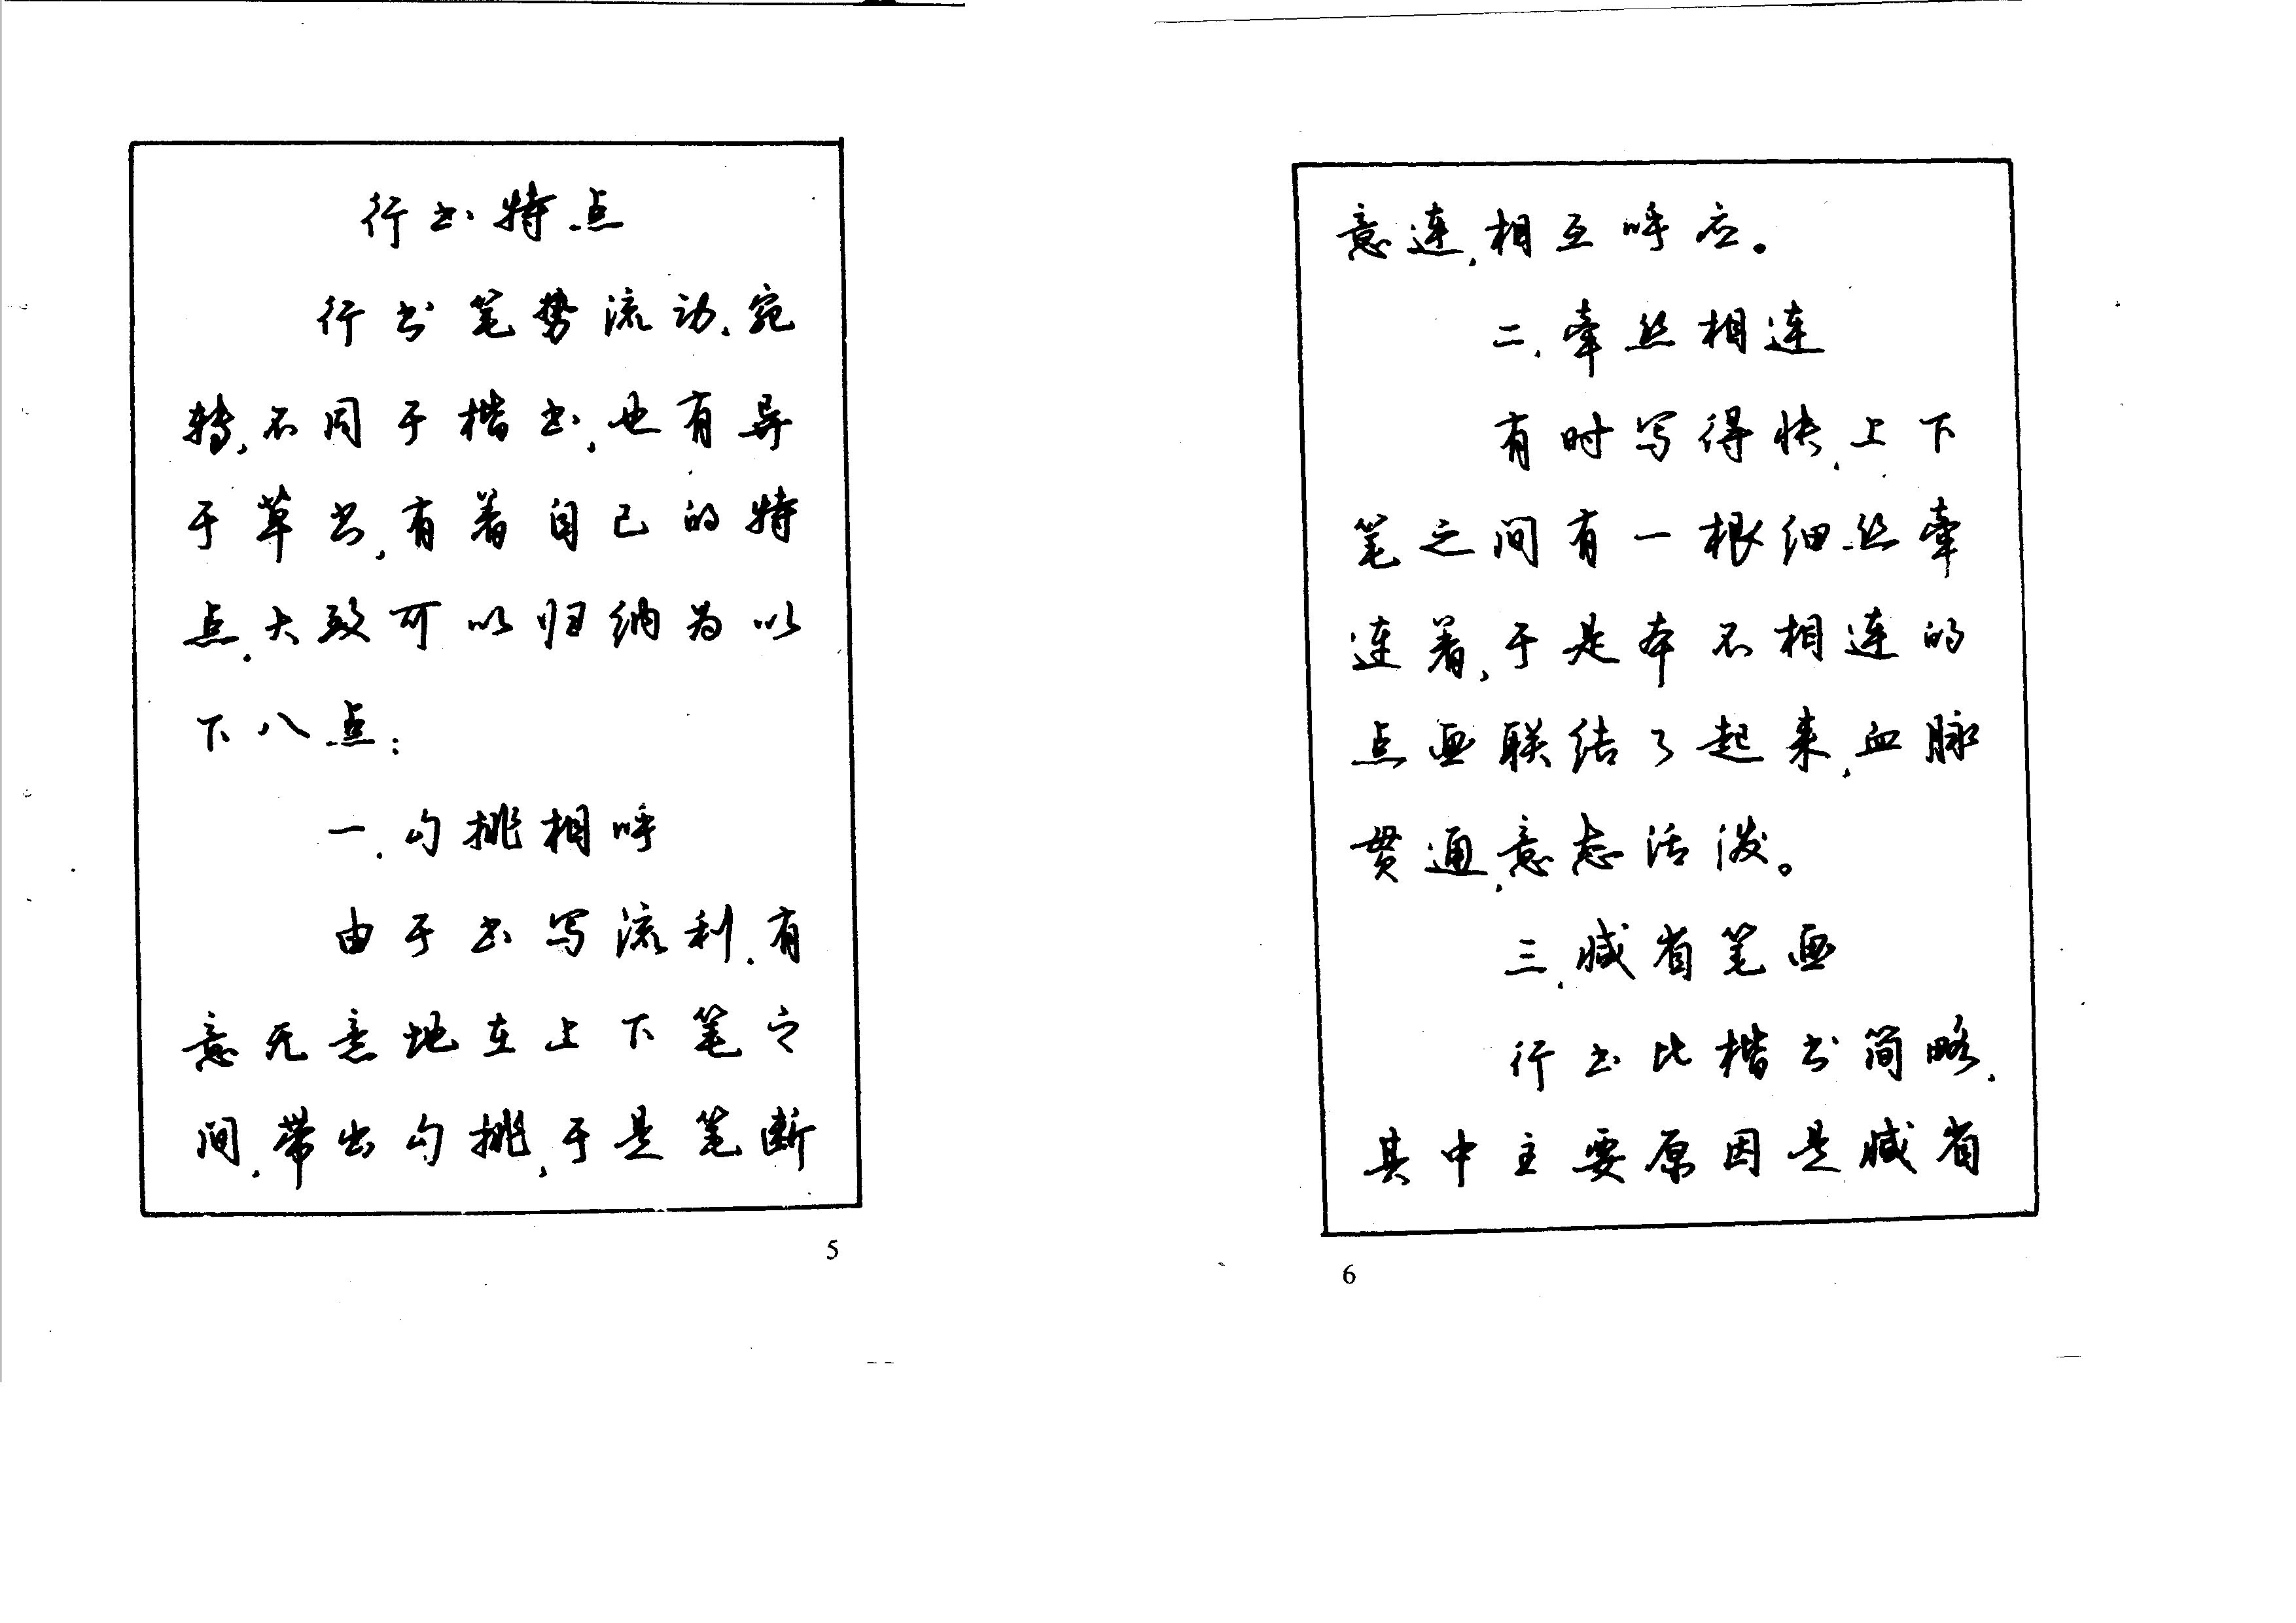 行书特点
行书笔势流动、宛
转,不同于楷书,也有异
于草书,有着自己的特
点,大致可以归纳为以
下八点:
一、勾挑相呼
由于书写流利,有
意无意地在上下笔之
间,带出勾挑,于是笔断
5
意连,相互呼应。
二、牵丝相连
有时写得快,上下
笔之间有一根细丝牵
连着,于是本不相连的
点画联结了起来,血脉
贯通,意态活泼。
三、减省笔画
行书比楷书简略,
其中主要原因是减省
6